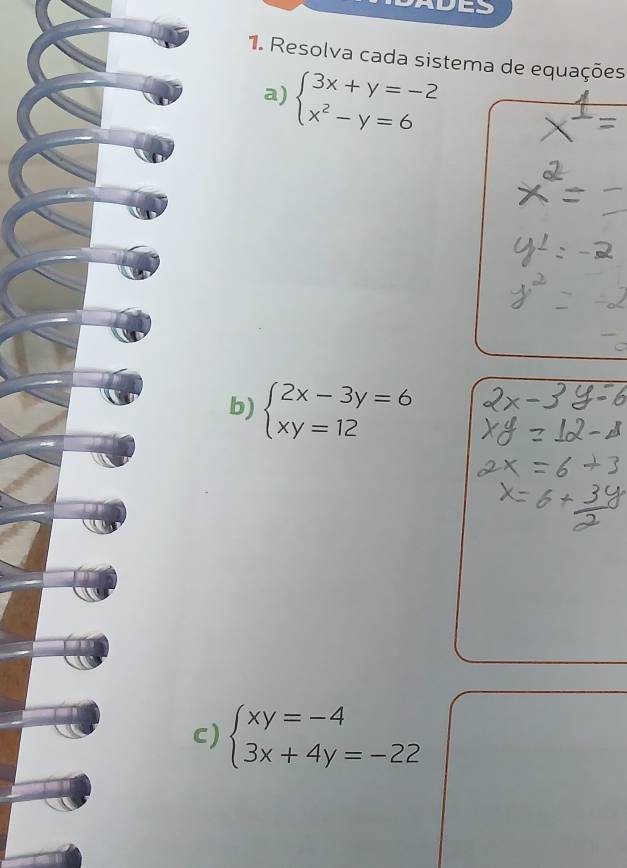 1. Resolva cada sistema de equações
a) { 3x + y = -2
x² - y = 6
x¹ =
x² = -
y¹ = -2
y² = -2
b) { 2x - 3y = 6
xy = 12
2x - 3y = 6
xy = 12 -
2x = 6 + 3
x = 6 + 3y/2
c) { xy = -4
3x + 4y = -22